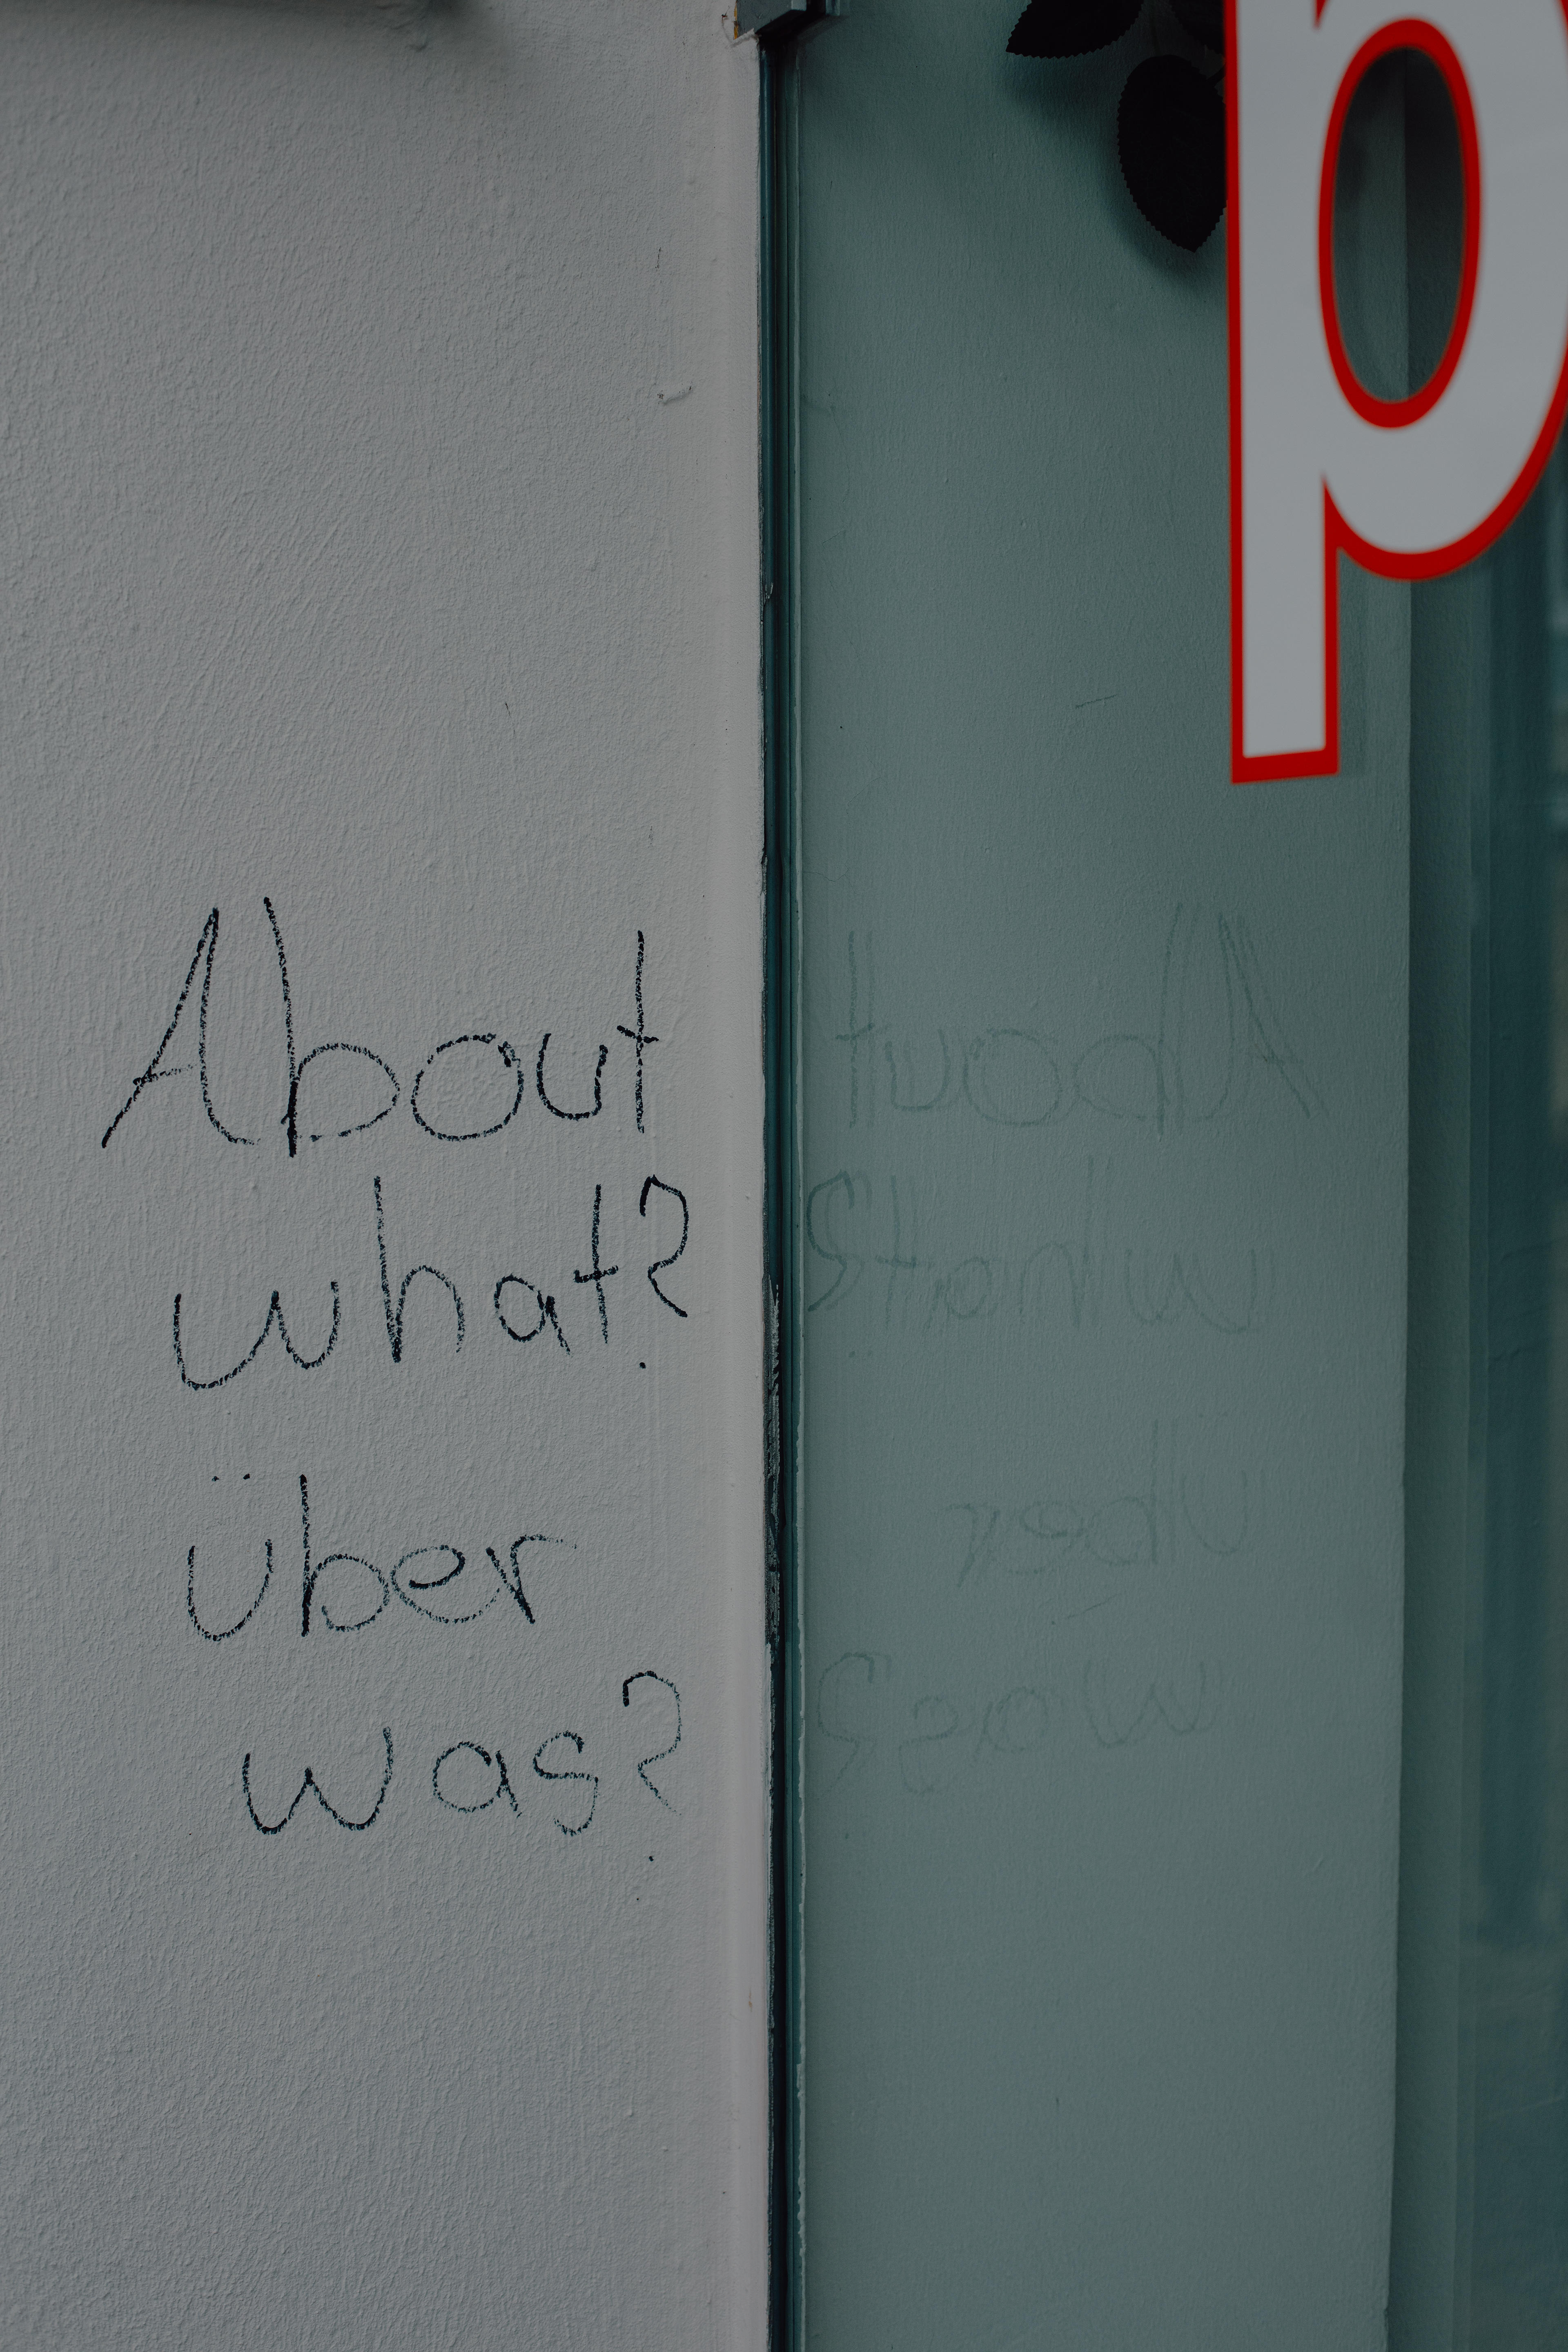 p
About
what?
über
was?